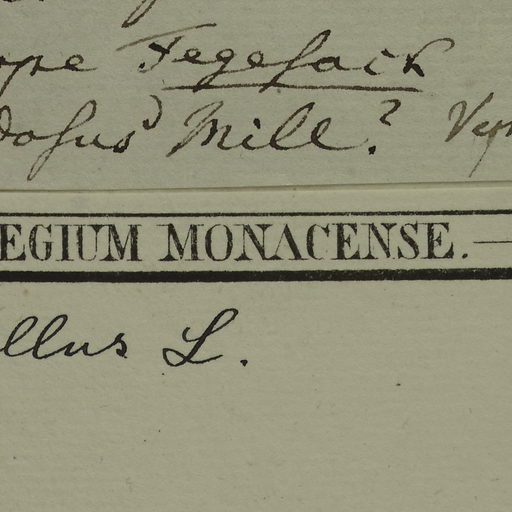 ope Fegesack
dosus Mill.? Ver
EGIUM MONACENSE.
llus L.